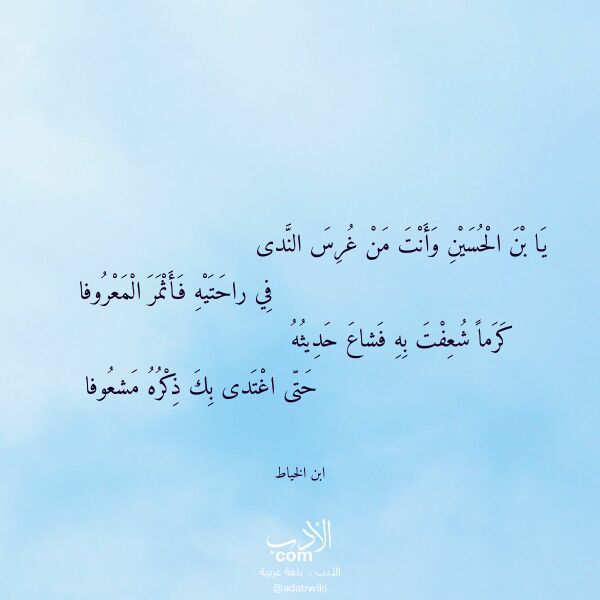 يَا بْنَ الْحُسَيْنِ وَأَنْتَ مَنْ غُرِسَ النَّدى
فِي راحَتَيْهِ فَأَثْمَرَ الْمَعْرُوفا
كَرَماً شُعِفْتَ بِهِ فَشاعَ حَدِيثُهُ
حَتّى اغْتَدى بِكَ ذِكْرُهُ مَشعُوفا
ابن الخياط
الأدب
.com
الأدب .. بلغة عربية
@adabwiki